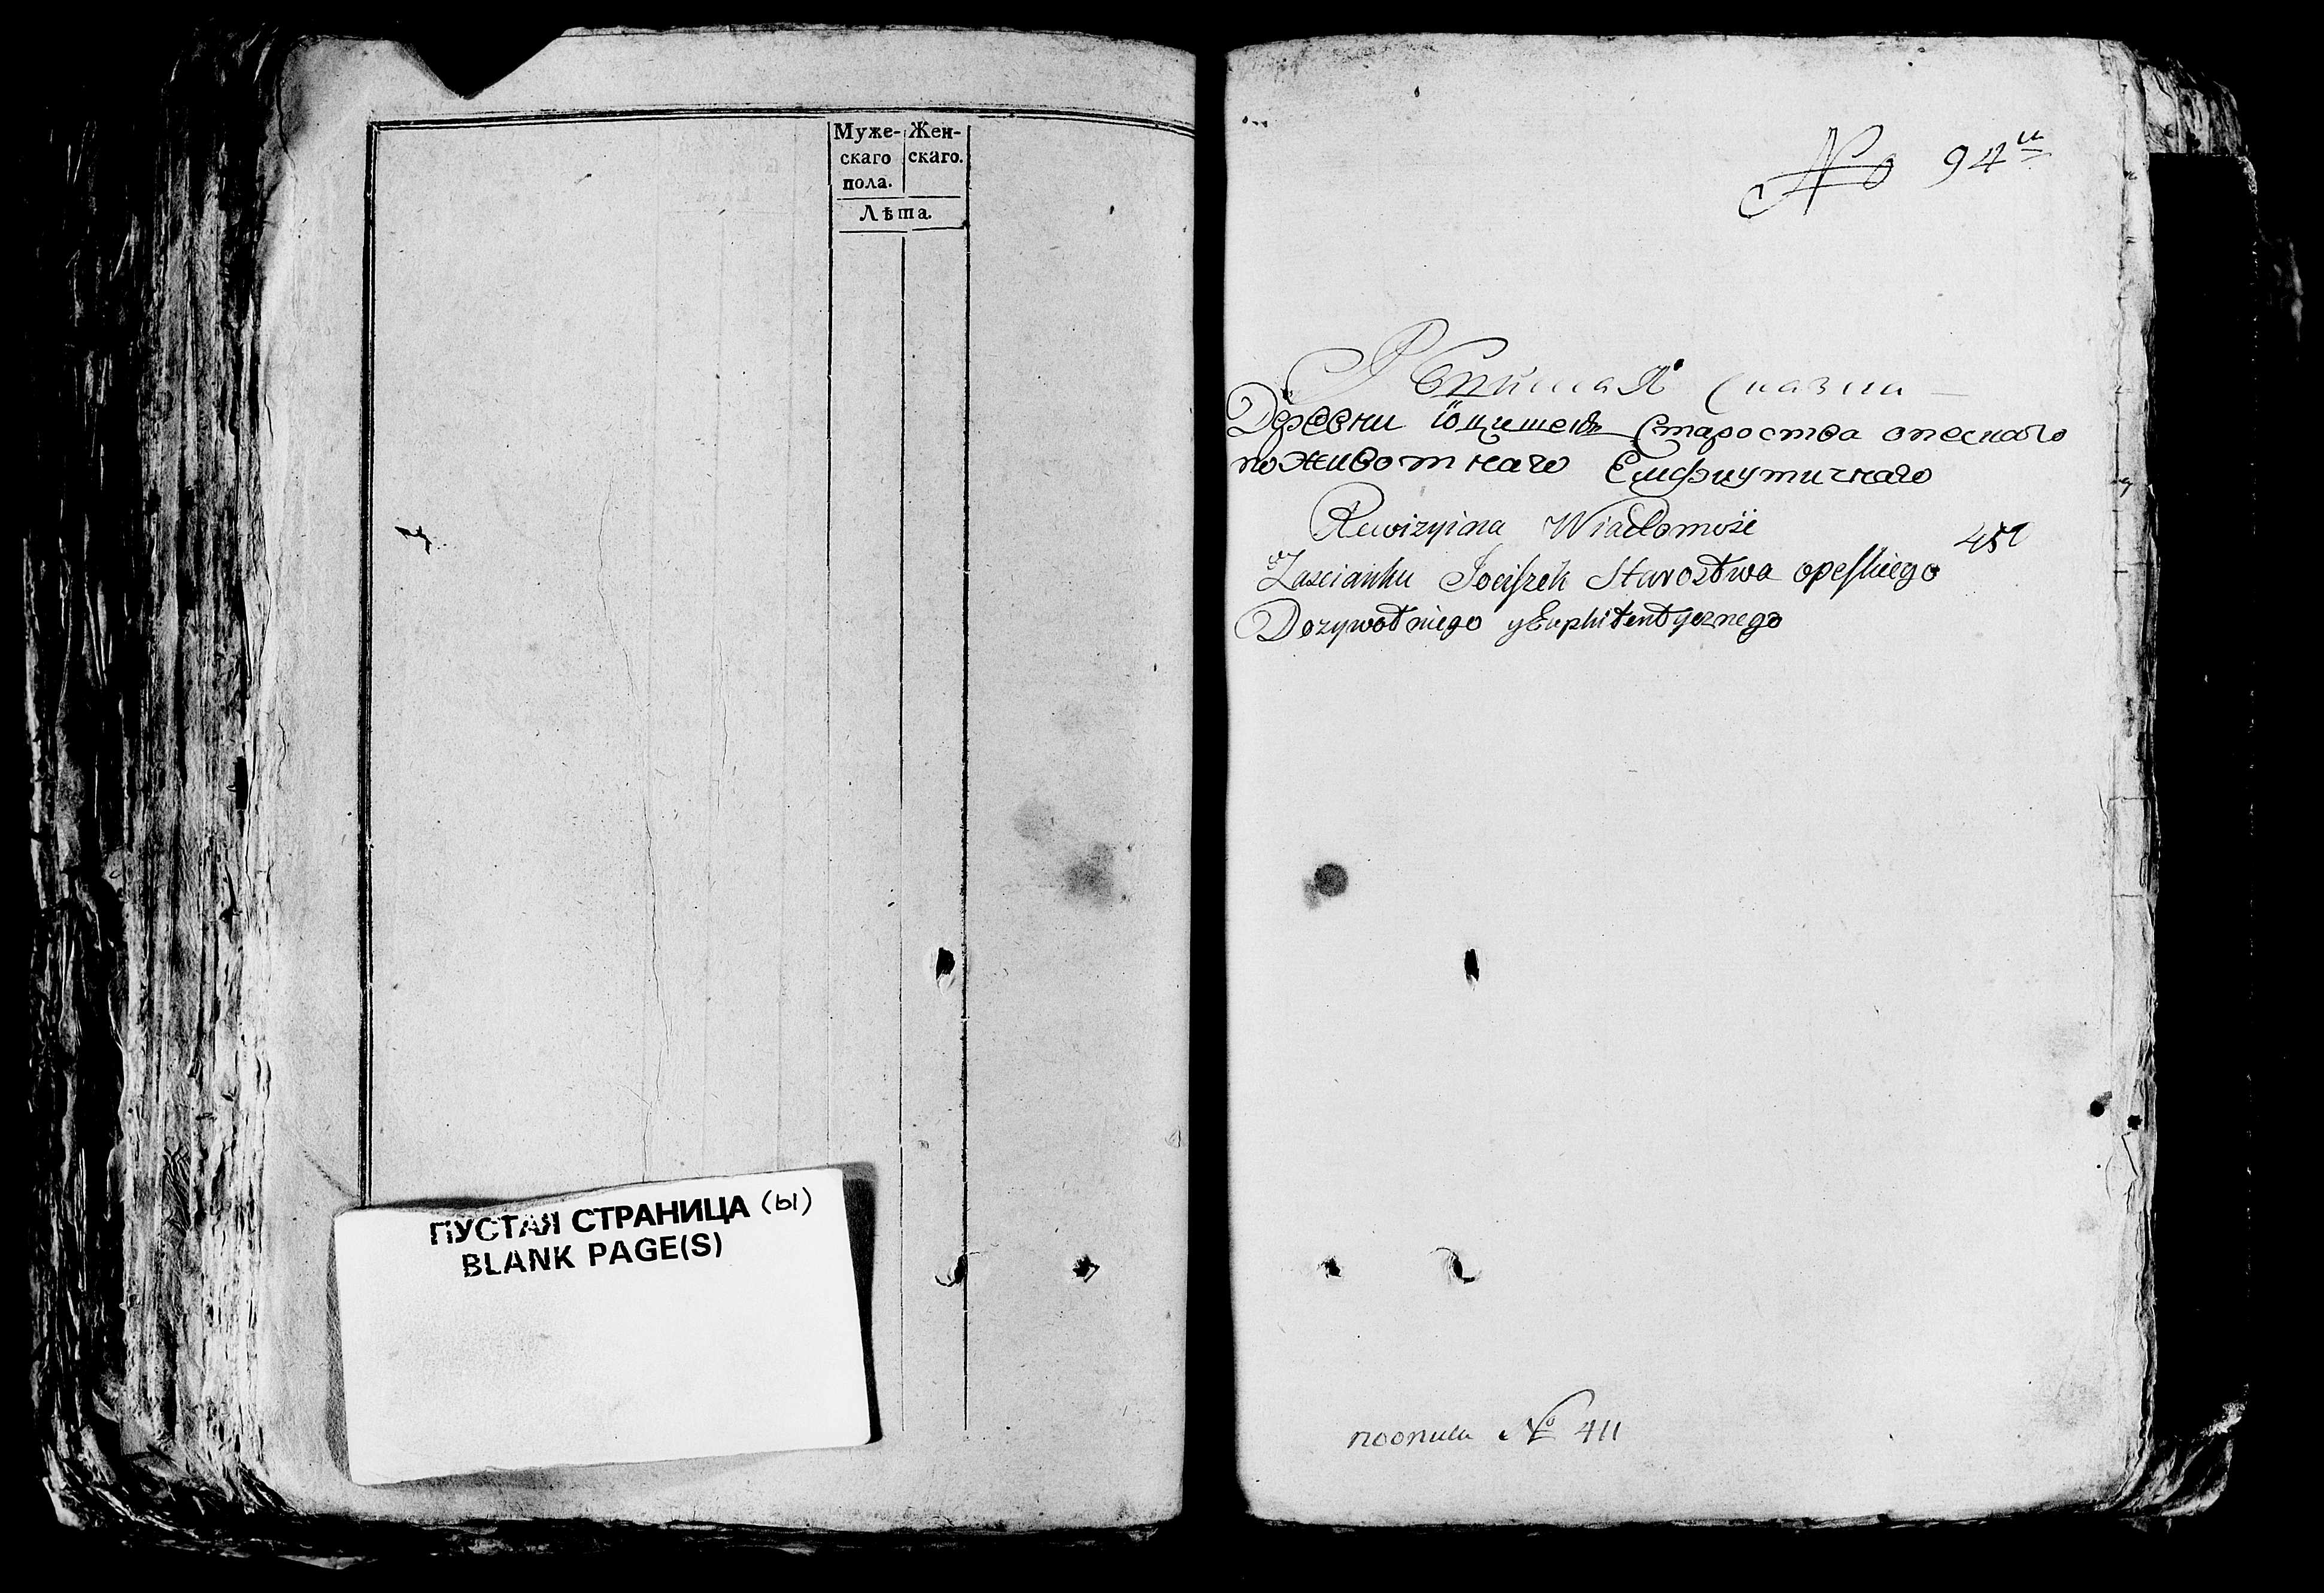 Муже- Жен-
скаго скаго.
пола.
Лѣта.
ПУСТАЯ СТРАНИЦА (ы)
BLANK PAGE(S)
№ 94и
Ревизская Сказка
Деревни Іоцишекъ Староства опескаго
поживотнаго Емфиутичнаго
Rewizyina Wiadomość
451
Zascianku Jociszek Starostwa opeskiego
Dozywotniego y Emphitentycznego
поописи № 411